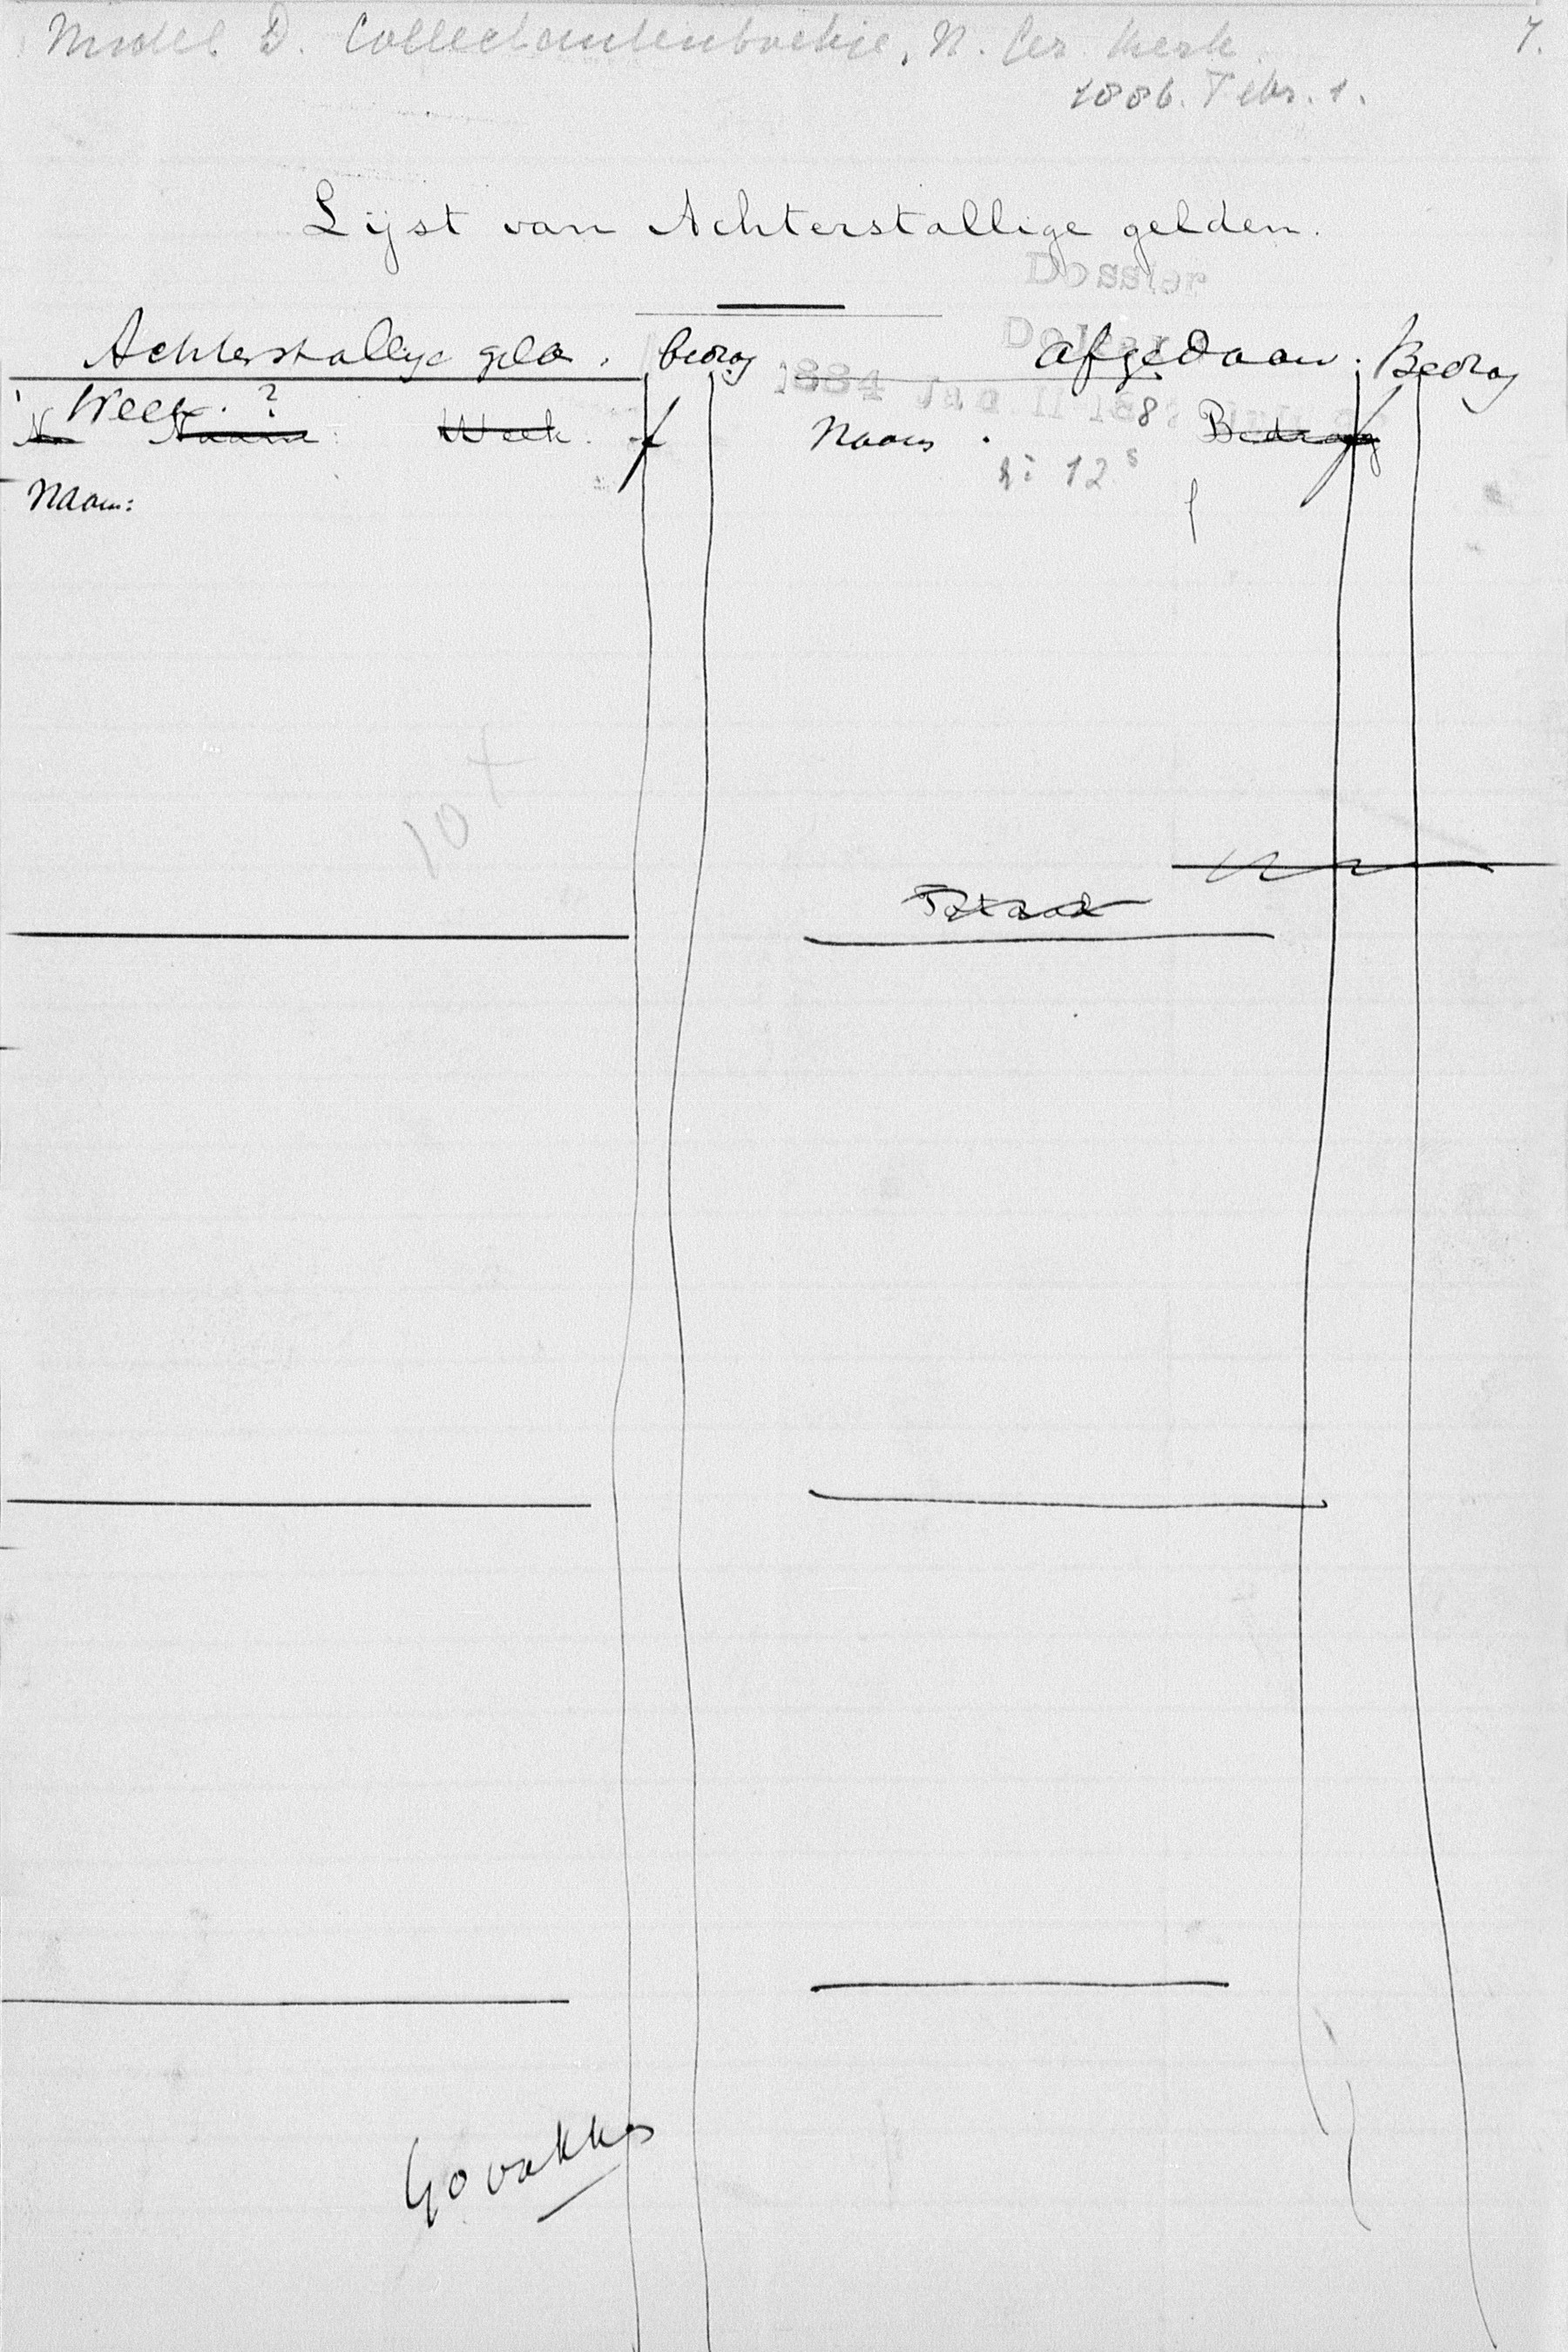 Model D. Collectantenboekje, N. Ger. Kerk. 7.
1886. Febr. 1.
Lijst van Achterstallige gelden.
Dossier
Achterstallige geld. bedrag afgedaan. Bedrag
1884 Jan. 11 188
Week. ?
No Naam: Week. f Naam. Bedrag
12
Naam:
10 +
Totaal
40 vakken